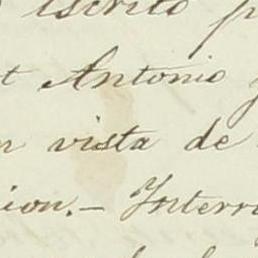 escrito p
t Antonio y
n vista de
ion.— Interr